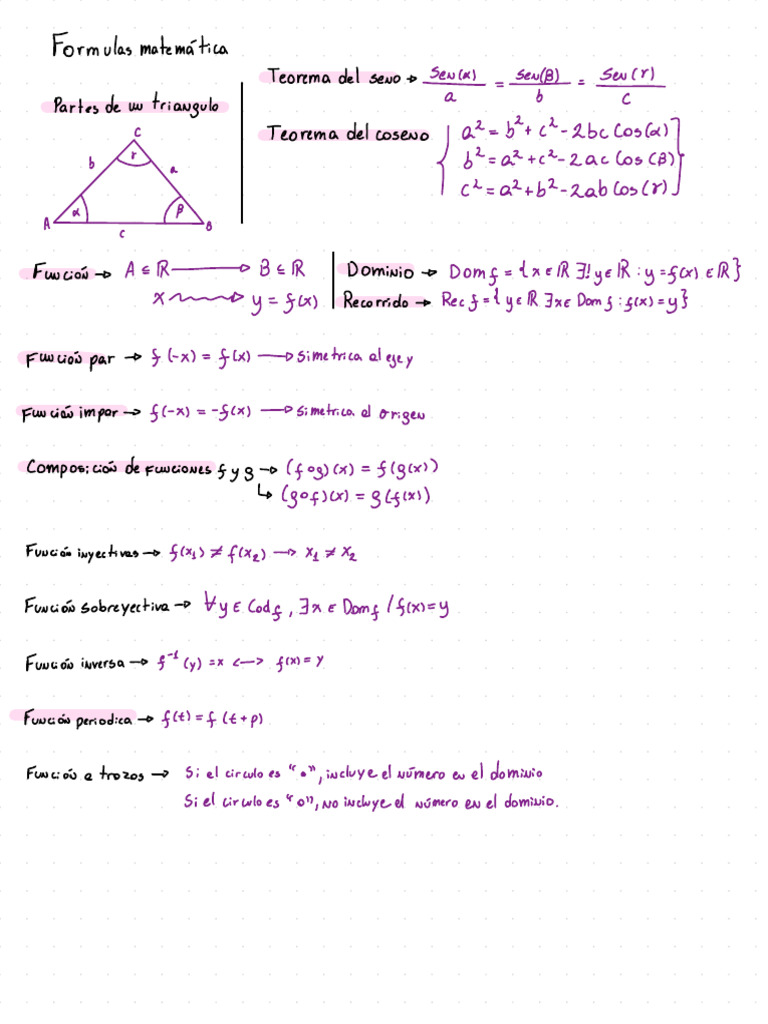 Formulas matemática
Partes de un triangulo
C
b
r
a
α
β
A
B
c
Teorema del seno → Sen(α)/a = Sen(β)/b = Sen(r)/c
Teorema del coseno { a² = b² + c² - 2bc Cos(α)
b² = a² + c² - 2ac Cos(β)
c² = a² + b² - 2ab Cos(r)
Función → A ∈ ℝ ⟶ B ∈ ℝ
x ⟿ y = f(x)
Dominio → Dom f = {x ∈ ℝ ∃! y ∈ ℝ : y = f(x) ∈ ℝ}
Recorrido → Rec f = {y ∈ ℝ ∃x ∈ Dom f : f(x) = y}
Función par → f(-x) = f(x) → Simetrica al eje y
Función impar → f(-x) = -f(x) → Simetrica al origen
Composición de funciones f y g → (f∘g)(x) = f(g(x))
↳ (g∘f)(x) = g(f(x))
Función inyectivas → f(x₁) ≠ f(x₂) → x₁ ≠ x₂
Función sobreyectiva → ∀y ∈ Cod f, ∃x ∈ Dom f / f(x) = y
Función inversa → f⁻¹(y) = x <-> f(x) = y
Función periodica → f(t) = f(t+p)
Función a trozos → Si el circulo es "•", incluye el número en el dominio
Si el circulo es "o", no incluye el número en el dominio.